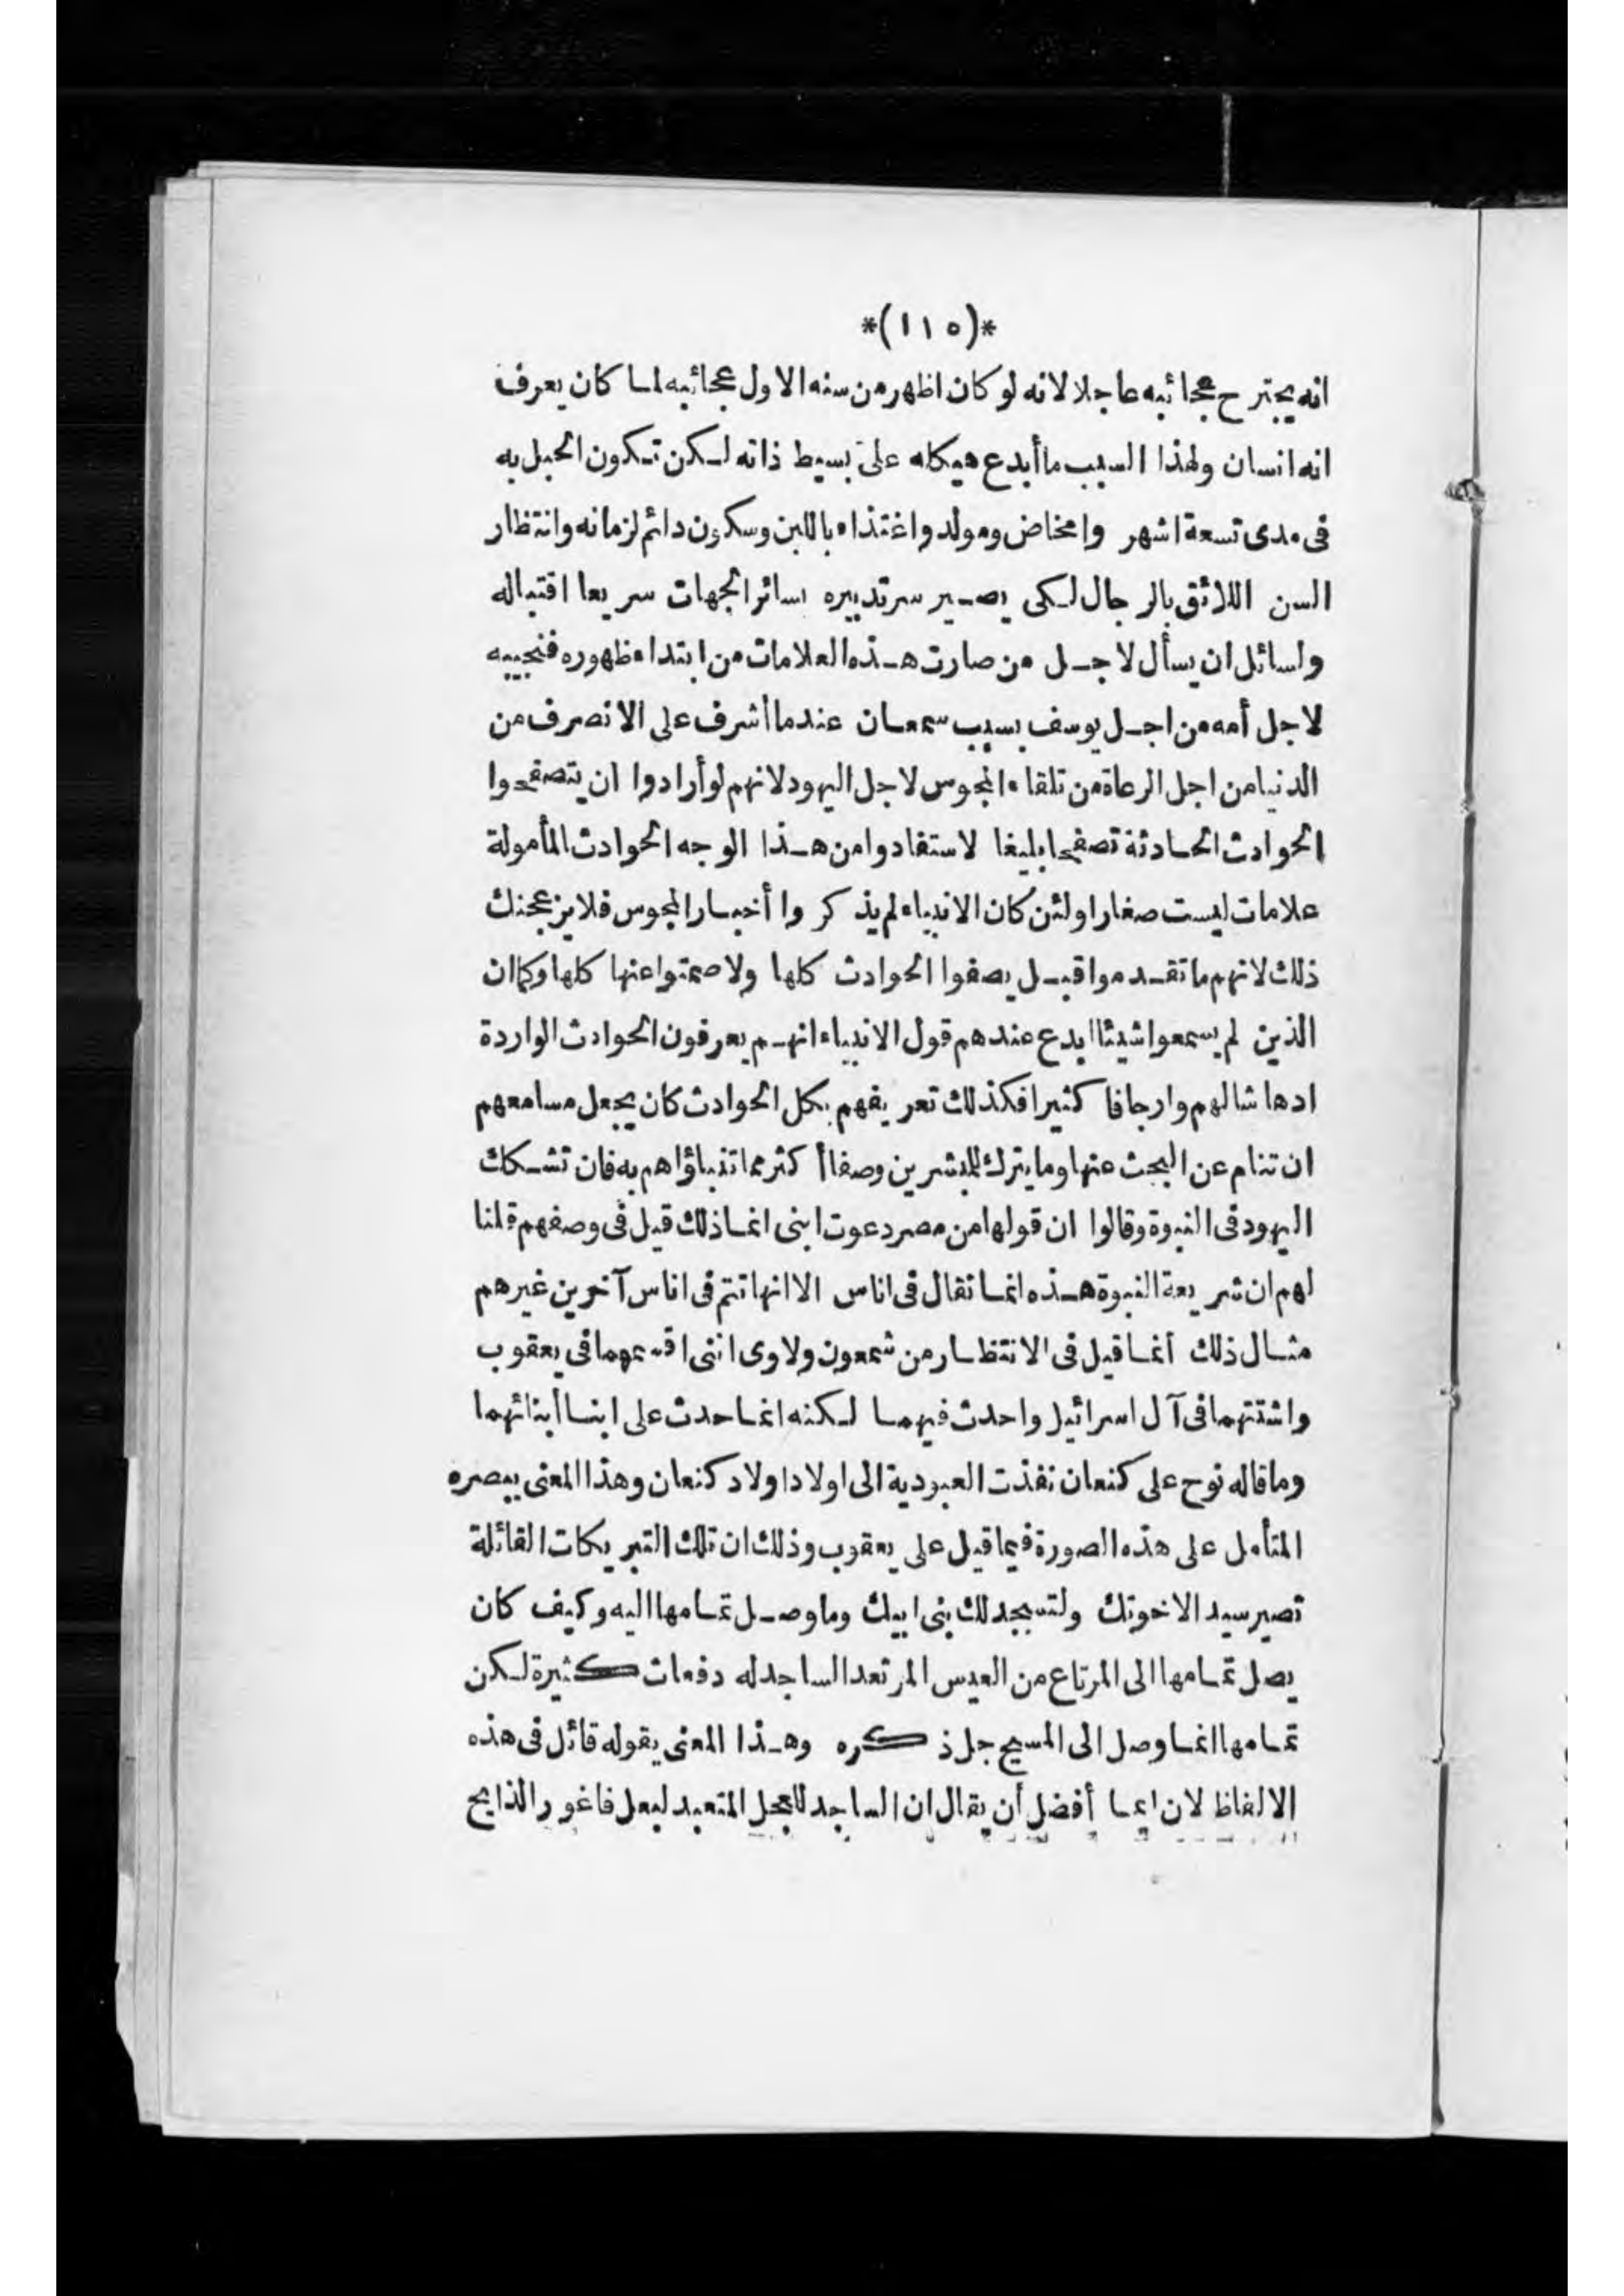 *(١١٥)*
انه يجترح عجائبه عاجلا لانه لو كان اظهر من سنه الاول عجائبه لما كان يعرف
انه انسان ولهذا السبب ما أبدع هيكله على بسيط ذاته لكن تكون الحبل به
فى مدى تسعة اشهر وامخاض ومولد واغتذاء باللبن وسكون دائم لزمانه وانتظار
السن اللائق بالرجال لكى يصير سر تدبيره بسائر الجهات سريعا اقتباله
ولسائل ان يسأل لاجل من صارت هذه العلامات من ابتداء ظهوره فنجيبه
لاجل أمه من اجل يوسف بسبب سمعان عندما أشرف على الانصرف من
الدنيا من اجل الرعاة من تلقاء المجوس لاجل اليهود لانهم لو أرادوا ان يتصفحوا
الحوادث الحادثة تصفحا بليغا لاستفادوا من هذا الوجه الحوادث المأمولة
علامات ليست صغارا ولئن كان الانبياء لم يذكروا أخبار المجوس فلا يزعجنك
ذلك لانهم ما تقدموا قبل يصفوا الحوادث كلها ولا صمتوا عنها كلها وكما ان
الذين لم يسمعوا شيئا ابدع عندهم قول الانبياء انهم يعرفون الحوادث الواردة
ادهاشا لهم وارجافا كثيرا فكذلك تعريفهم بكل الحوادث كان يجعل مسامعهم
ان تنام عن البحث عنها وما يترك للمبشرين وصفا أكثر مما تنباؤاهم به فان تشكك
اليهود فى النبوة وقالوا ان قولها من مصر دعوت ابنى انما ذلك قيل فى وصفهم قلنا
لهم ان شريعة النبوة هذه انما تقال فى اناس الا انها تتم فى اناس آخرين غيرهم
مثال ذلك أنما قيل فى الانتظار من شمعون ولاوى اننى اقسمهما فى يعقوب
واشتتهما فى آل اسرائيل واحدث فيهما لكنه انما حدث على ابنا أبنائهما
وما قاله نوح على كنعان نفذت العبودية الى اولاد اولاد كنعان وهذا المعنى يبصره
المتأمل على هذه الصورة فيما قيل على يعقوب وذلك ان تلك التبريكات القائلة
تصير سيد الاخوتك ولتسجد لك بنى ابيك وما وصل تمامها اليه وكيف كان
يصل تمامها الى المرتاع من العيس المرتعد الساجد له دفعات كثيرة لكن
تمامها انما وصل الى المسيح جل ذكره وهذا المعنى يقوله قائل فى هذه
الالفاظ لان ايما أفضل أن يقال ان الساجد للعجل المتعبد لبعل فاغور الذابح